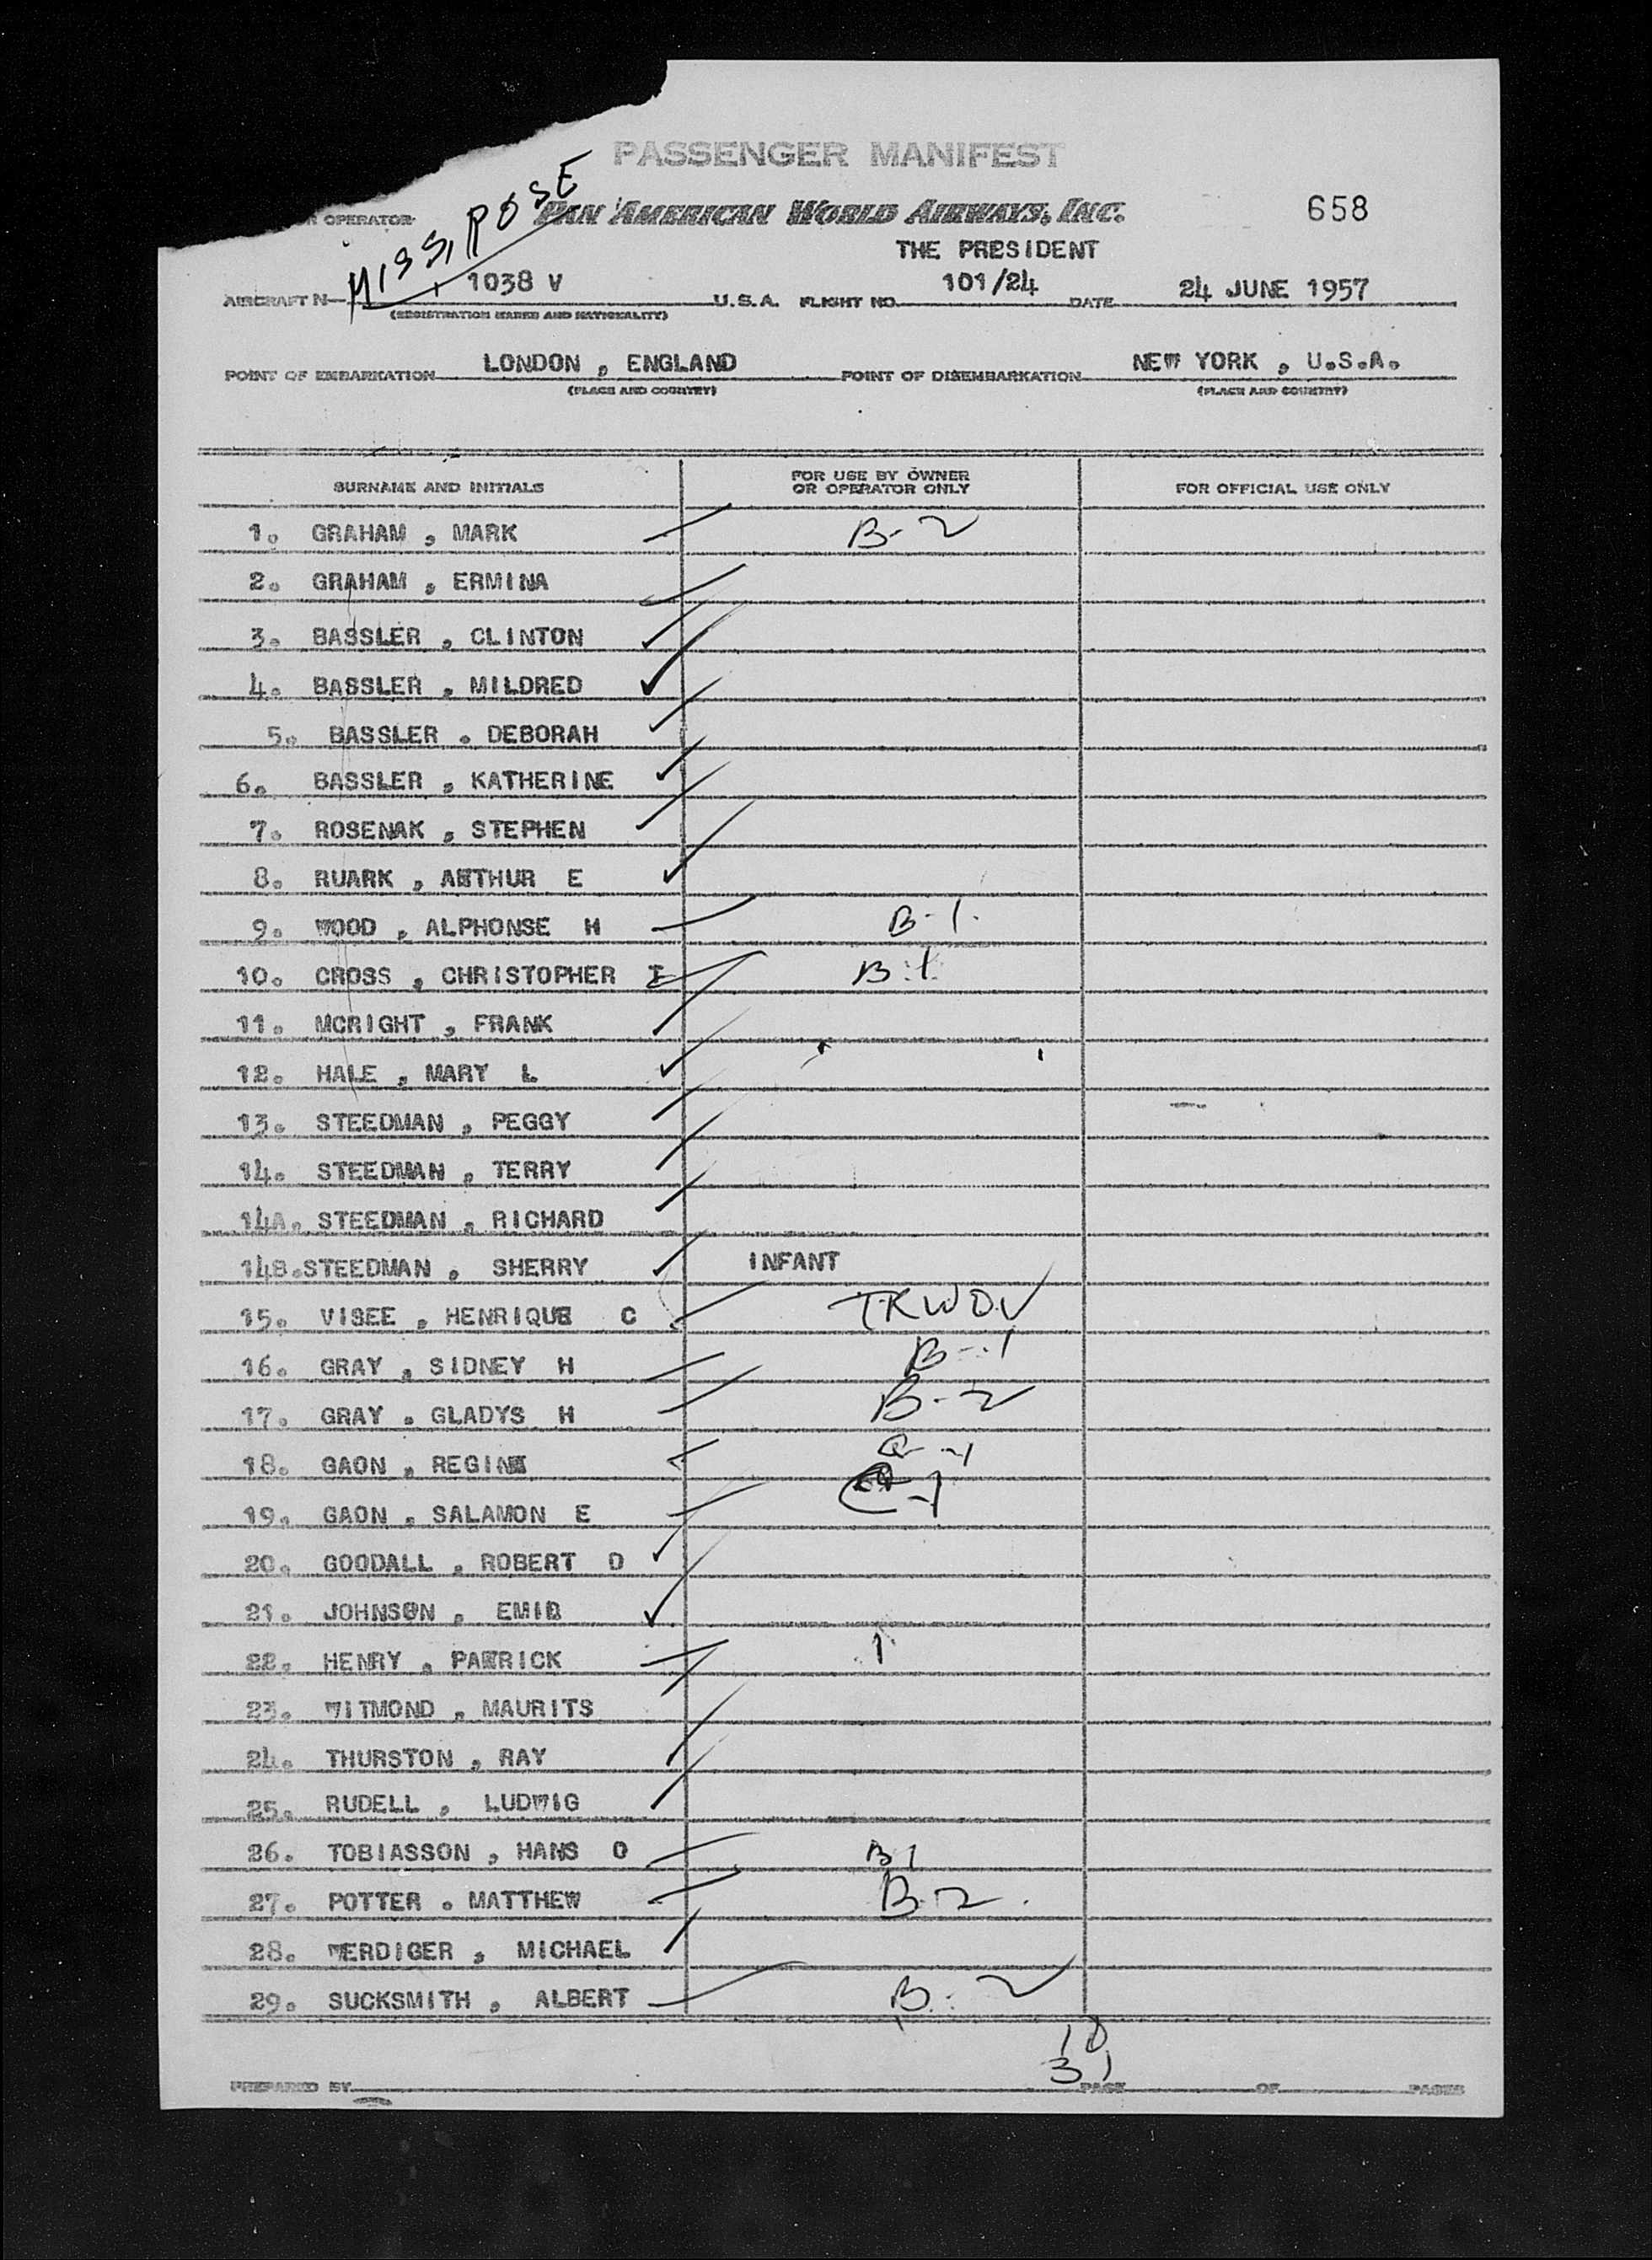 PASSENGER MANIFEST
OPERATOR
MISS. ROSE
PAN AMERICAN WORLD AIRWAYS, INC.
658
THE PRESIDENT
AIRCRAFT N— 1038 V U.S.A. FLIGHT NO. 101/24 DATE 24 JUNE 1957
(REGISTRATION MARKS AND NATIONALITY)
POINT OF EMBARKATION LONDON , ENGLAND POINT OF DISEMBARKATION NEW YORK , U.S.A.
(PLACE AND COUNTRY) (PLACE AND COUNTRY)
SURNAME AND INITIALS FOR USE BY OWNER OR OPERATOR ONLY FOR OFFICIAL USE ONLY
1. GRAHAM , MARK B-2
2. GRAHAM , ERMINA
3. BASSLER , CLINTON
4. BASSLER , MILDRED
5. BASSLER . DEBORAH
6. BASSLER , KATHERINE
7. ROSENAK , STEPHEN
8. RUARK , ARTHUR E
9. WOOD , ALPHONSE H B-1.
10. CROSS , CHRISTOPHER B-1
11. MCRIGHT , FRANK
12. HALE , MARY L
13. STEEDMAN , PEGGY
14. STEEDMAN , TERRY
14A. STEEDMAN , RICHARD
14B.STEEDMAN , SHERRY INFANT
15. VISEE , HENRIQUE C TRWOV
16. GRAY , SIDNEY H B-1
17. GRAY . GLADYS H B-2
18. GAON , REGINE
19. GAON , SALAMON E
20. GOODALL , ROBERT D
21. JOHNSON , EMIL
22. HENRY , PATRICK 1
23. WITMOND , MAURITS
24. THURSTON , RAY
25. RUDELL , LUDWIG
26. TOBIASSON , HANS O B1
27. POTTER . MATTHEW B-2
28. WERDIGER , MICHAEL
29. SUCKSMITH , ALBERT B-2
18
31
PREPARED BY PAGE OF PAGES